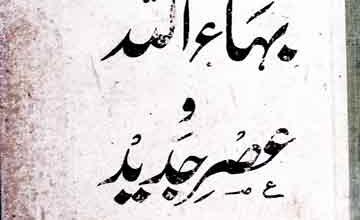 بهاء الله
و
عصر جدید